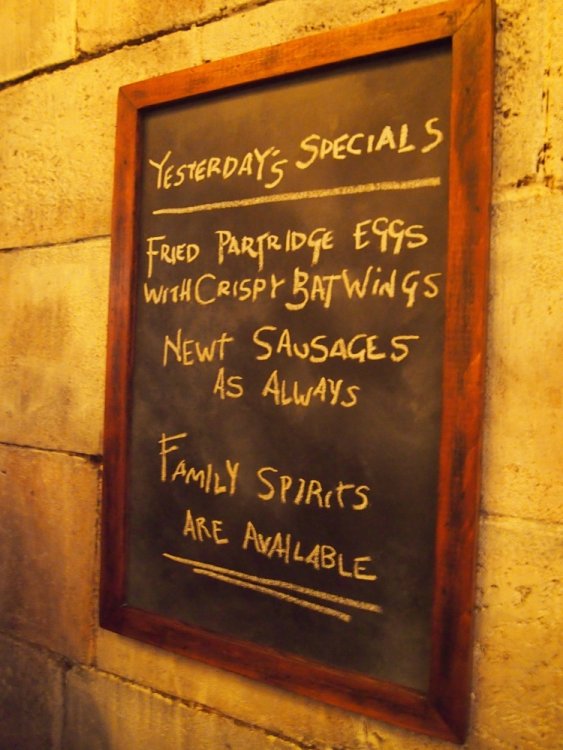 YESTERDAY'S SPECIALS
FRIED PARTRIDGE EGGS
WITH CRISPY BAT WINGS
NEWT SAUSAGES
AS ALWAYS
FAMILY SPIRITS
ARE AVAILABLE